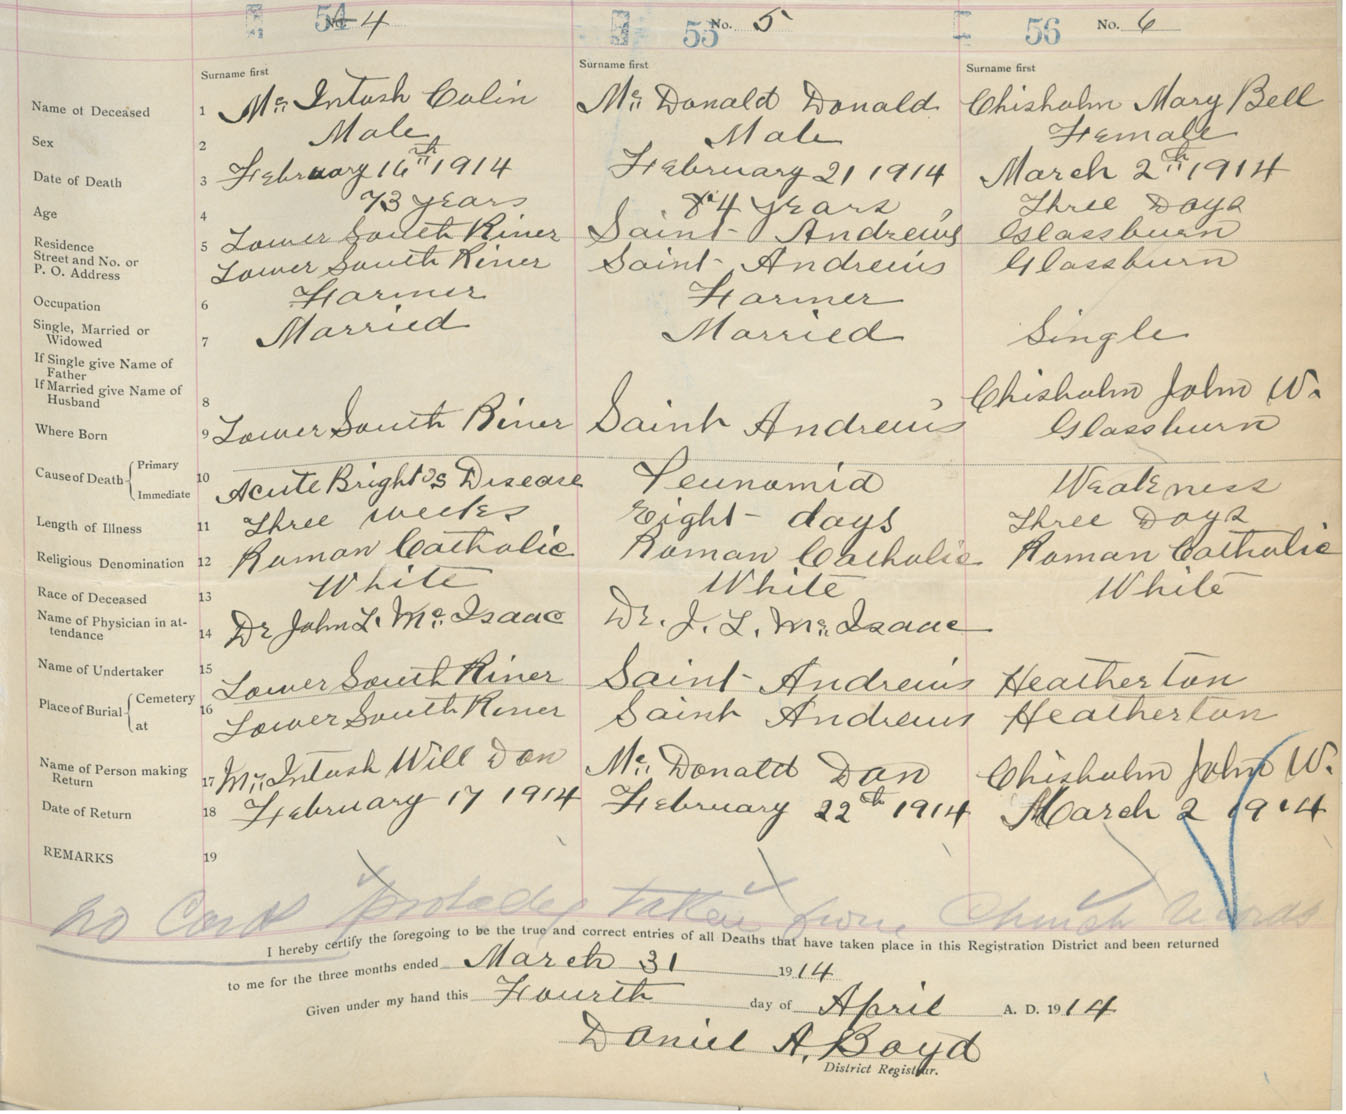 54 No. 4 55 No. 5 56 No. 6
Surname first Surname first Surname first
Name of Deceased 1 Mc Intosh Colin Mc Donald Donald Chisholm Mary Bell
Sex 2 Male Male Female
Date of Death 3 February 16th 1914 February 21 1914 March 2th 1914
Age 4 73 years 84 years Three Days
Residence 5 Lower South River Saint Andrews Glassburn
Street and No. or
P. O. Address Lower South River Saint Andrews Glassburn
Occupation 6 Farmer Farmer
Single, Married or
Widowed 7 Married Married Single
If Single give Name of
Father
If Married give Name of
Husband 8 Chisholm John W.
Where Born 9 Lower South River Saint Andrews Glassburn
Cause of Death Primary 10 Acute Bright's Disease Peunomia Weakness
Immediate
Length of Illness 11 Three weeks Eight days Three Days
Religious Denomination 12 Roman Catholic Roman Catholic Roman Catholic
Race of Deceased 13 White White White
Name of Physician in at-
tendance 14 Dr John L. Mc Isaac Dr. J. L. Mc Isaac
Name of Undertaker 15
Place of Burial Cemetery 16 Lower South River Saint Andrews Heatherton
at Lower South River Saint Andrews Heatherton
Name of Person making
Return 17 Mc Intosh Will Dan Mc Donald Dan Chisholm John W.
Date of Return 18 February 17 1914 February 22th 1914 March 2 1914
REMARKS 19
No Cards probably taken from Church records
I hereby certify the foregoing to be the true and correct entries of all Deaths that have taken place in this Registration District and been returned
to me for the three months ended March 31 1914
Given under my hand this Fourth day of April A. D. 1914
Daniel A. Boyd
District Registrar.